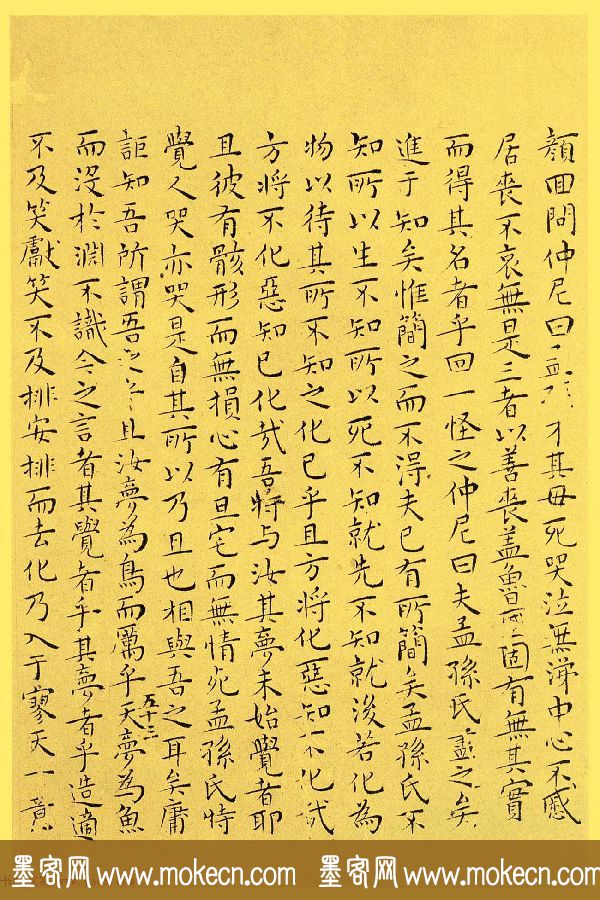 顏回問仲尼曰孟孫才其毋死哭泣無涕中心不慼
居喪不哀無是三者以善喪蓋魯國固有無其實
而得其名者乎回一怪之仲尼曰夫孟孫氏盡之矣
進于知矣惟簡之而不得夫已有所簡矣孟孫氏不
知所以生不知所以死不知就先不知就後若化為
物以待其所不知之化已乎且方將化惡知不化哉
方將不化惡知已化哉吾特与汝其夢未始覺者耶
且彼有骸形而無損心有旦宅而無情死孟孫氏特
覺人哭亦哭是自其所以乃且也相與吾之耳矣庸
詎知吾所謂吾之乎且汝夢為鳥而厲乎天夢為魚
五十三
而沒於淵不識今之言者其覺者乎其夢者乎造適
不及笑獻笑不及排安排而去化乃入于寥天一
墨客网 www.mokecn.com 墨客网 www.mokecn.com